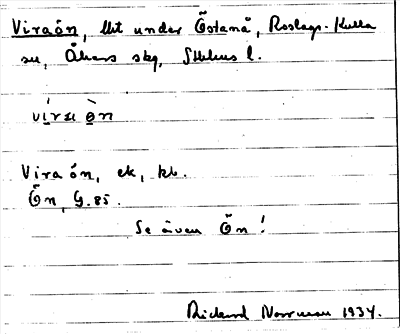 Viraön, lht under Östanå, Roslags-Kulla
sn, Åkers skg, Sthlms l.
Vira ön, ek, kb.
Ön, G. 85.
Se även Ön!
Rickard Norrman 1934.